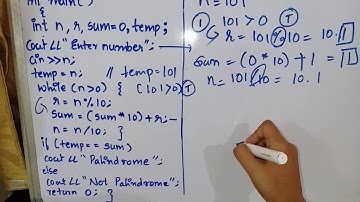 int main()
{
int n, r, sum=0, temp;
cout<<"Enter number";
cin>>n;
temp=n; // temp=101
while(n>0) { (101>0) T
r=n%10;
sum=(sum*10)+r;
n=n/10; }
if(temp==sum)
cout<<"Palindrome";
else
cout<<"Not Palindrome";
return 0; }
n=101
1 101>0 T
r=101%10=10.1
sum=(0*10)+1=1
n=101/10=10.1